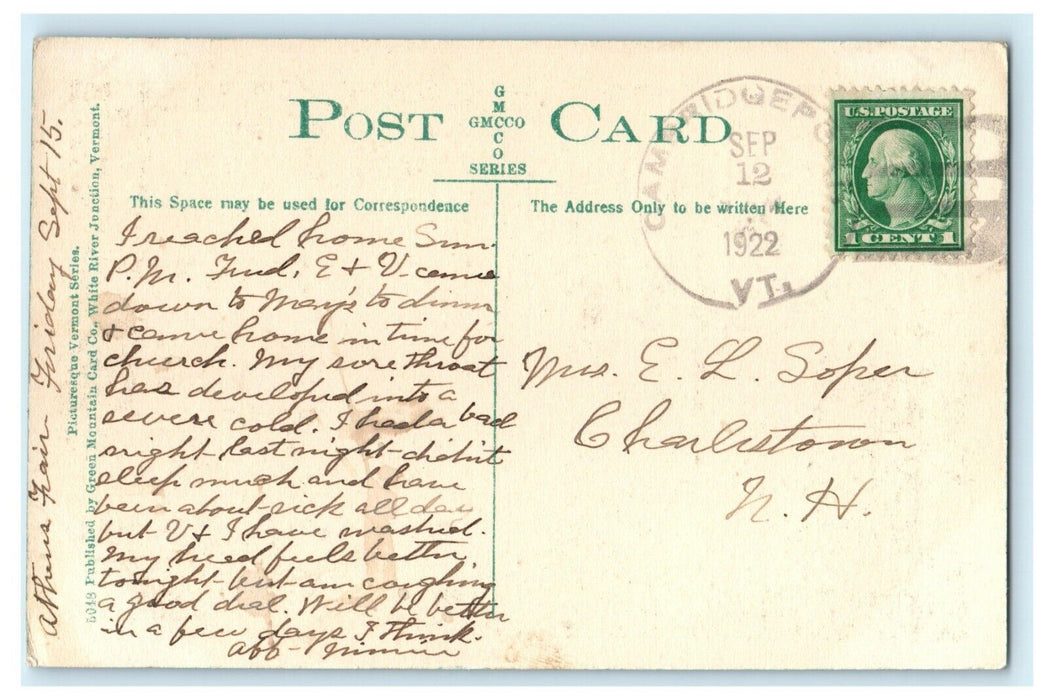 POST CARD
G
M
GMCCO
C
O
SERIES
This Space may be used for Correspondence
The Address Only to be written Here
CAMBRIDGEPO
SEP
12
1922
VT.
U.S. POSTAGE
1 CENT 1
I reached home Sun.
P.M. Fred, E & V. came
down to Mary's to dinner
& came home in time for
church. My sore throat
has developed into a
severe cold. I had a bad
night last night - didn't
sleep much and have
been about sick all day
but V & I have washed.
My head feels better
tonight but am coughing
a good deal. Will be better
in a few days I think.
Aff - Minnie
Mrs. E. L. Soper
Charlestown
N. H.
Athens Fair Friday Sept 15.
Picturesque Vermont Series.
Published by Green Mountain Card Co., White River Junction, Vermont.